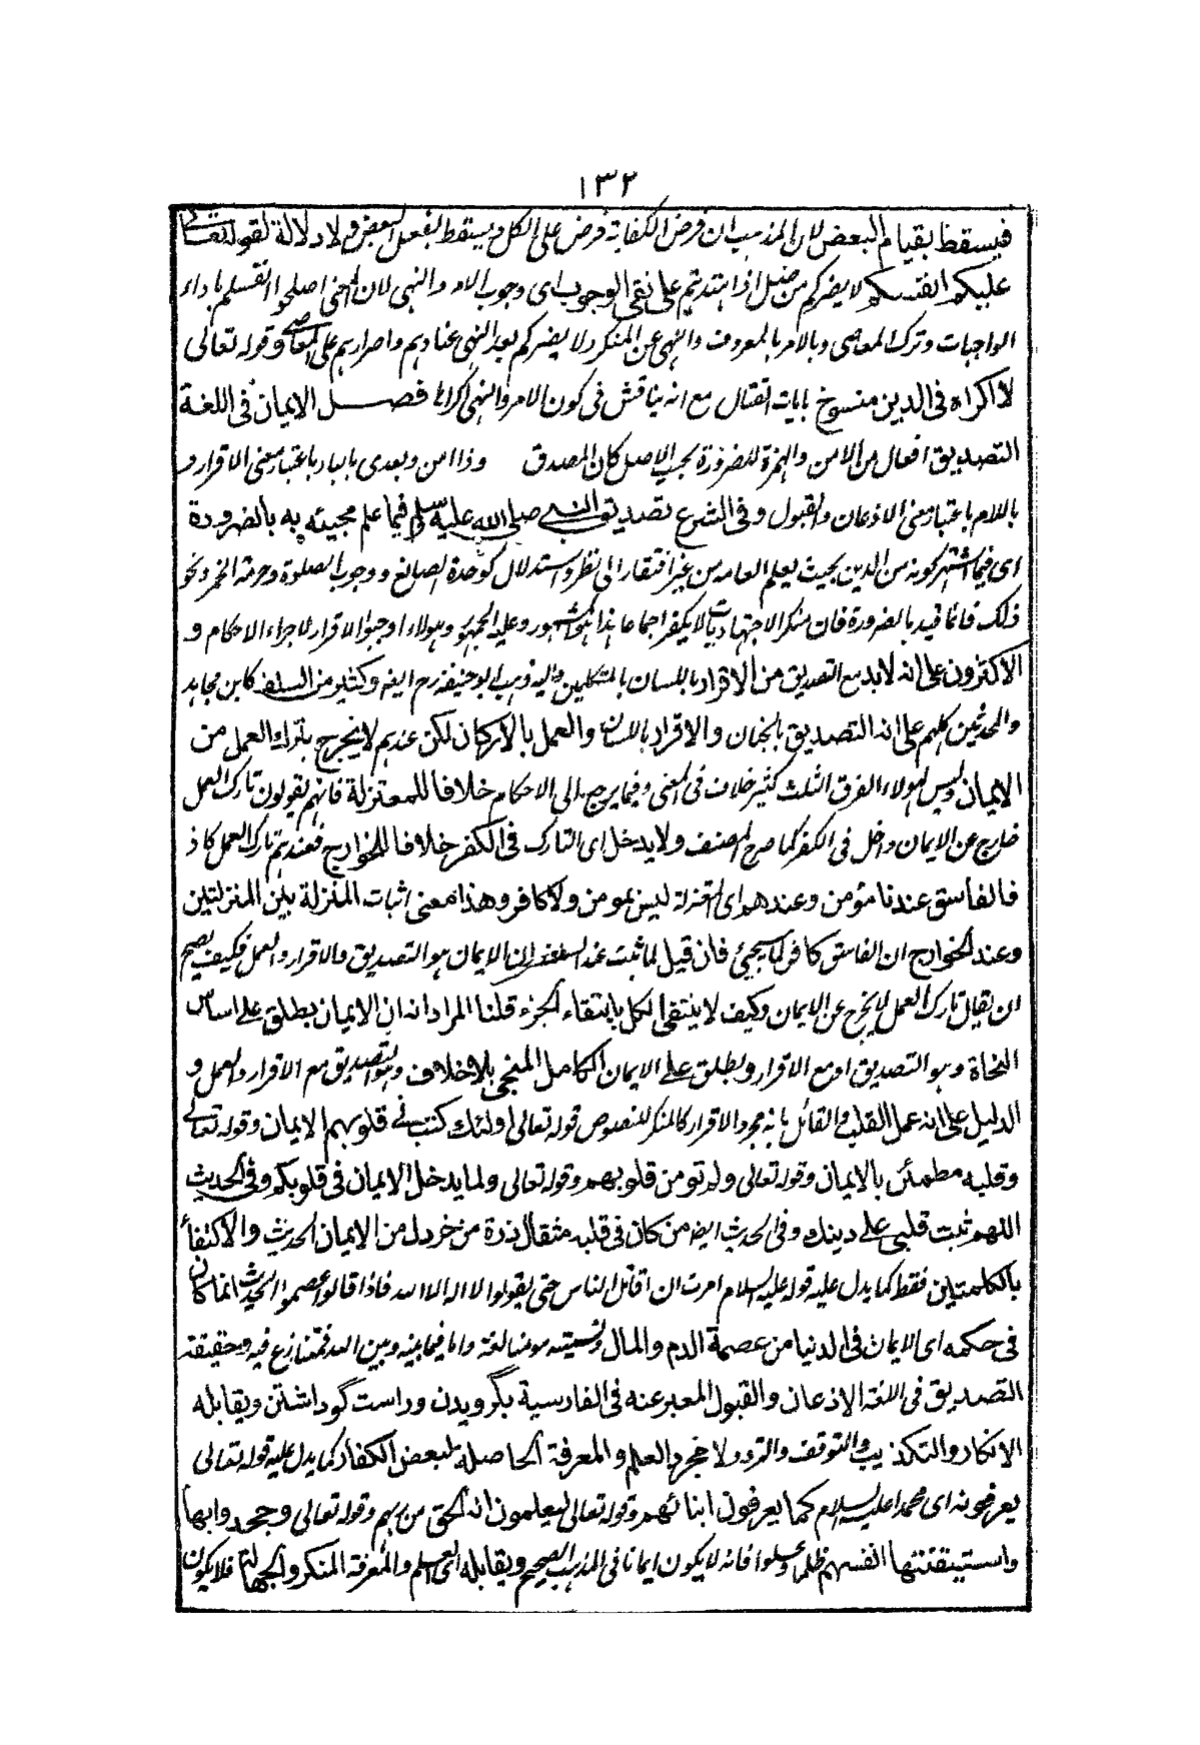 ١٣٢
فيسقط بقيام البعض لان المذهب ان فرض الكفاية فرض على الكل ويسقط بفعل البعض ولا دلالة لقوله تعالى
عليكم انفسكم لا يضركم من ضل اذا اهتديتم على نفى الوجوب اى وجوب الامر والنهى لان المعنى اصلحوا انفسكم باداء
الواجبات وترك المعاصى وبالامر بالمعروف والنهى عن المنكر ولا يضركم بعد النهى عنادهم واصرارهم على المعاصى وقوله تعالى
لا اكراه فى الدين منسوخ بايات القتال مع انه يناقش فى كون الامر والنهى اكراها فصل الايمان فى اللغة
التصديق افعال من الامن والهمزة للصيرورة بحسب الاصل كان المصدق وذا امن ويعدى بالباء باعتبار معنى الاقرار و
باللام باعتبار معنى الاذعان والقبول وفى الشرع تصديق النبى صلى الله عليه وسلم فيما علم مجيئه به بالضرورة
اى فيما اشتهر كونه من الدين بحيث يعلم العامه من غير افتقار الى نظر واستدلال كوحدة الصانع ووجوب الصلوة وحرمة الخمر ونحو
ذلك فانما قيد بالضرورة فان منكر الاجتهاديات لا يكفر اجماعا هذا هو المشهور وعليه الجمهور وهولاء اوجبوا الاقرار لاجراء الاحكام و
الاكثرون على انه لا بد مع التصديق من الاقرار باللسان بالمتكلمين واليه ذهب ابو حنيفة رح ايضا وكثير من السلف كابن مجاهد
والمحدثين كلهم على انه التصديق بالجنان والاقرار باللسان والعمل بالاركان لكن عندهم لا يخرج بترك العمل من
الايمان وليس لهولاء الفرق الثلث كثير خلاف فى المعنى وفيما يرجع الى الاحكام خلافا للمعتزلة فانهم يقولون تارك العمل
خارج عن الايمان داخل فى الكفر كما صرح المصنف ولا يدخل اى التارك فى الكفر خلافا للخوارج فعندهم تارك العمل كاذ
فالفاسق عندنا مؤمن وعندهم اى المعتزلة ليس بمومن ولا كافر وهذا معنى اثبات المنزلة بين المنزلتين
وعند الخوارج ان الفاسق كافر كما سيجئ فان قيل لما ثبت عند السلف ان الايمان هو التصديق والاقرار والعمل فكيف يصح
ان يقال تارك العمل لا يخرج عن الايمان وكيف لا ينتفى الكل بانتفاء الجزء قلنا المراد انه ان الايمان يطلق على اساس
النجاة وهو التصديق او مع الاقرار ويطلق على الايمان الكامل المنجى بلا خلاف وهو التصديق مع الاقرار والعمل و
الدليل على انه عمل القلب والقائل بانه مجرد الاقرار كالمنكر للنصوص قوله تعالى اولئك كتب فى قلوبهم الايمان وقوله تعالى
وقلبه مطمئن بالايمان وقوله تعالى ولم تومن قلوبهم وقوله تعالى ولما يدخل الايمان فى قلوبكم وفى الحديث
اللهم ثبت قلبى على دينك وفى الحديث ايضا من كان فى قلبه مثقال ذرة من خردل من الايمان الحديث والاكتفاء
بالكلمتين فقط كما يدل عليه قوله عليه السلام امرت ان اقاتل الناس حتى يقولوا لا اله الا الله فاذا قالوا عصموا الحديث انما كان
فى حكمه اى الايمان فى الدنيا من عصمة الدم والمال وتسميته مومنا لغة واما فيما بينه وبين الله فمتنازع فيه وحقيقة
التصديق فى اللغة الاذعان والقبول المعبر عنه فى الفارسية بگرويدن وراست گو داشتن ويقابله
الانكار والتكذيب والتوقف والتردد لا مجرد العلم والمعرفة الحاصلة لبعض الكفار كما يدل عليه قوله تعالى
يعرفونه اى محمدا عليه السلام كما يعرفون ابنائهم وقوله تعالى ليعلمون انه الحق من ربهم وقوله تعالى وجحدوا بها
واستيقنتها انفسهم ظلما وعلوا فانه لا يكون ايمانا فى المذهب الصحيح ويقابله اى العلم والمعرفة المنكر والجهالة فلا يكون